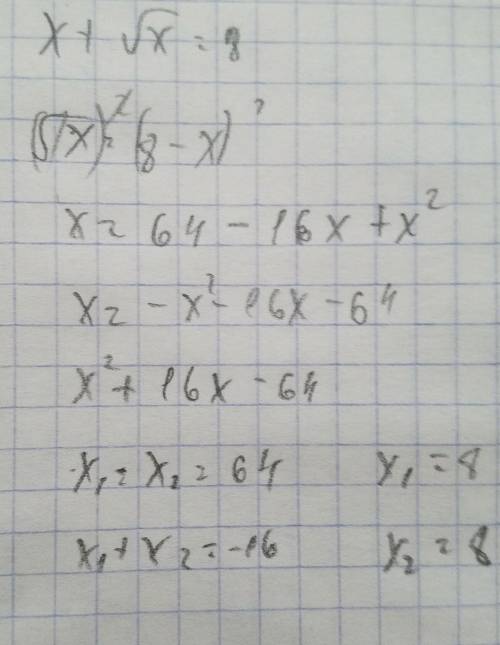 x + √x = 8
(√x)² = (8 - x)²
x = 64 - 16x + x²
x = - x² - 16x - 64
x² + 16x - 64
x₁ = x₂ = 64 x₁ = 8
x₁ + x₂ = -16 x₂ = 8